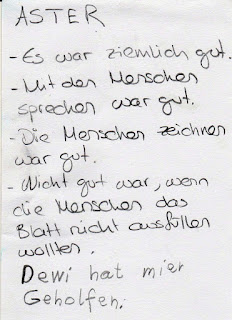 ASTER
- Es war ziemlich gut.
- Mit den Menschen
sprechen war gut.
- Die Menschen zeichnen
war gut.
- Nicht gut war, wenn
die Menschen das
Blatt nicht ausfüllen
wollten.
Dewi hat mier
Geholfen.